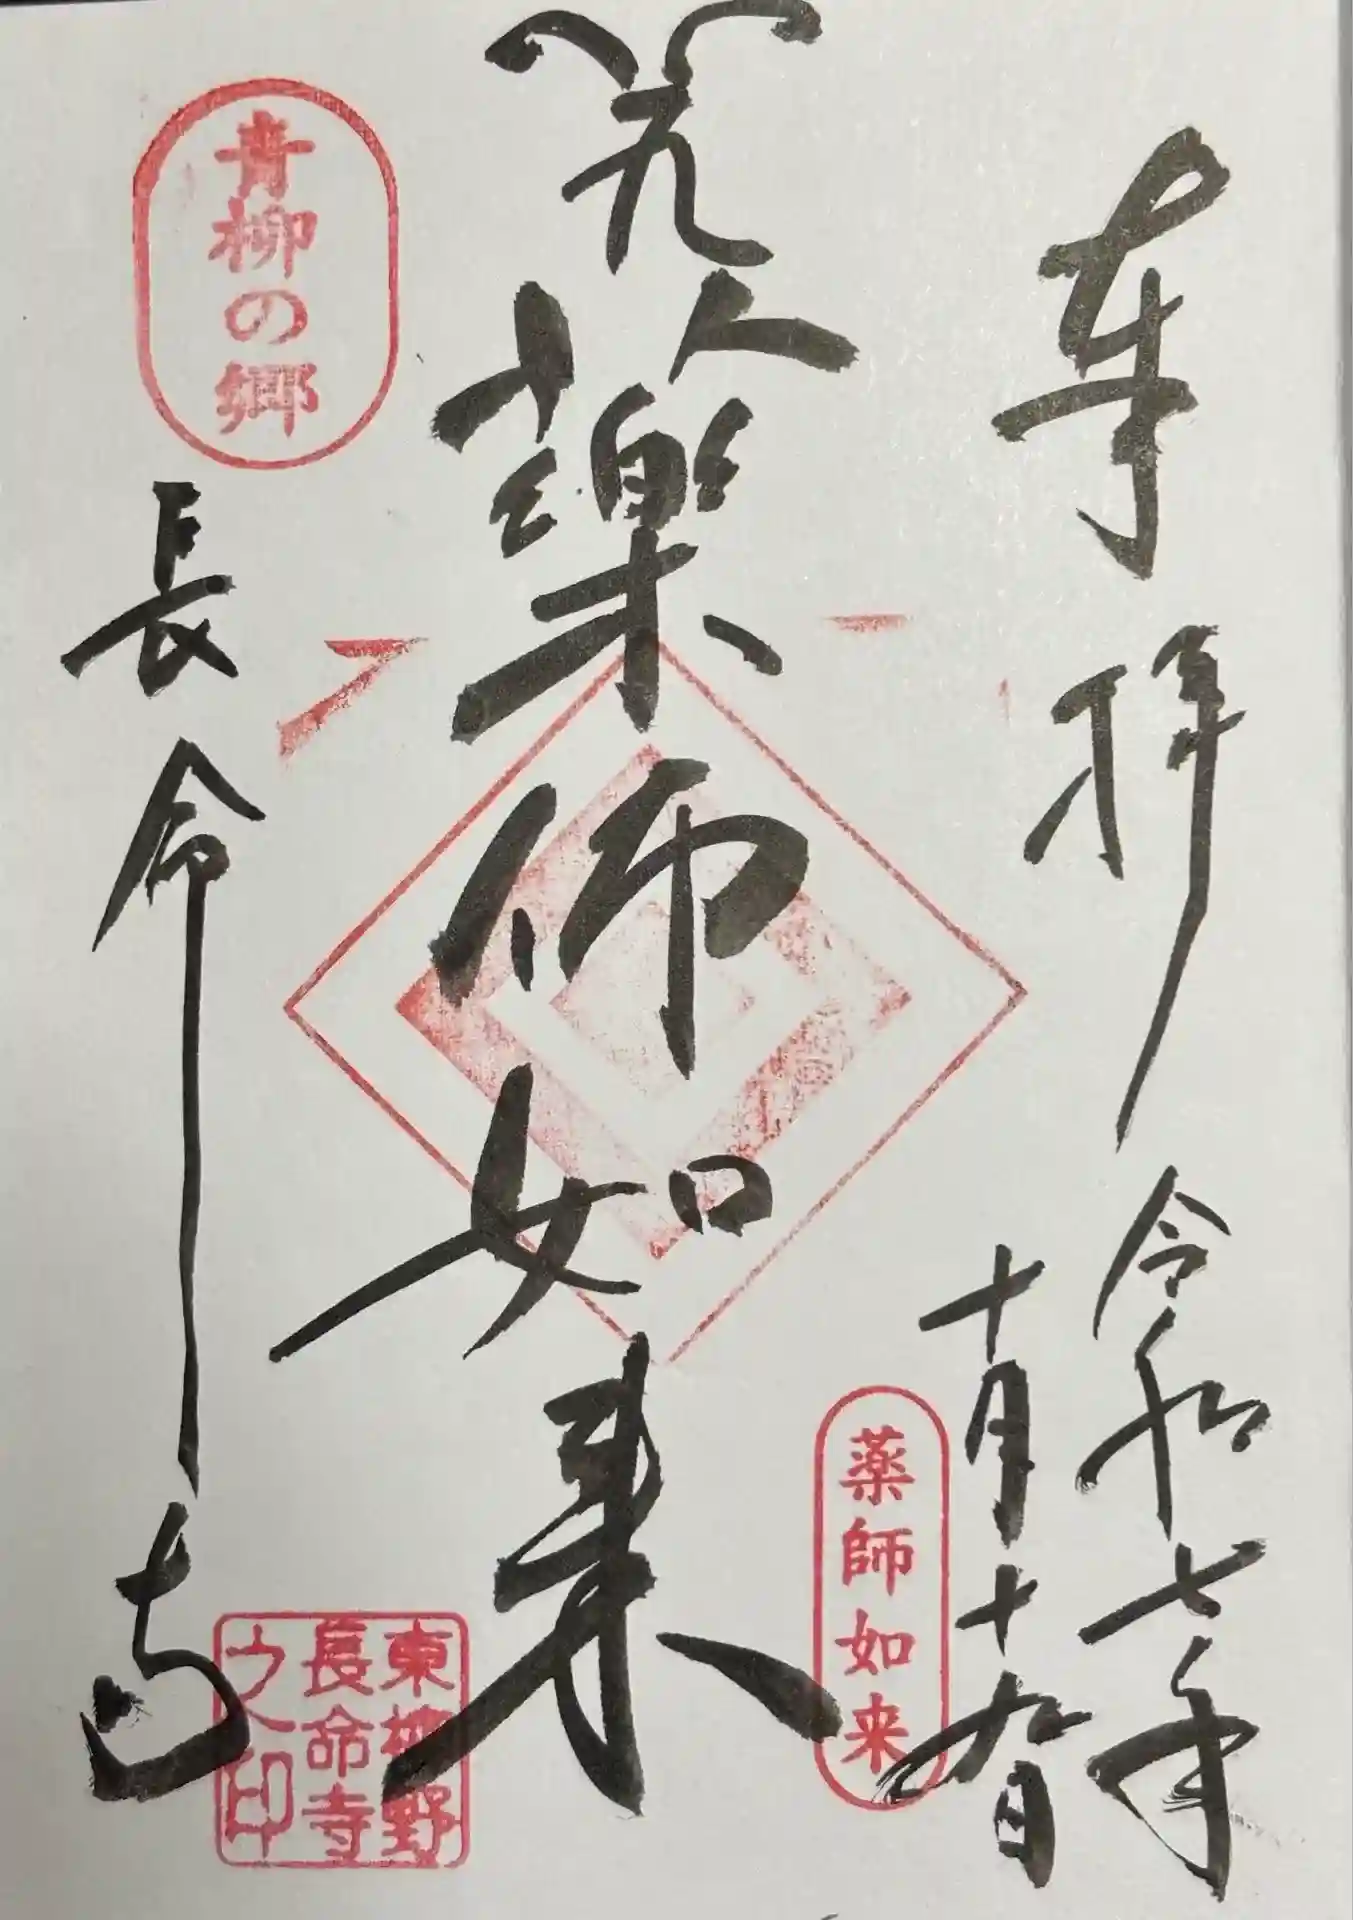 奉拝
令和七年
十月十九日
薬師如来
薬師如来
青柳の郷
長命寺
東柳野
長命寺
之印